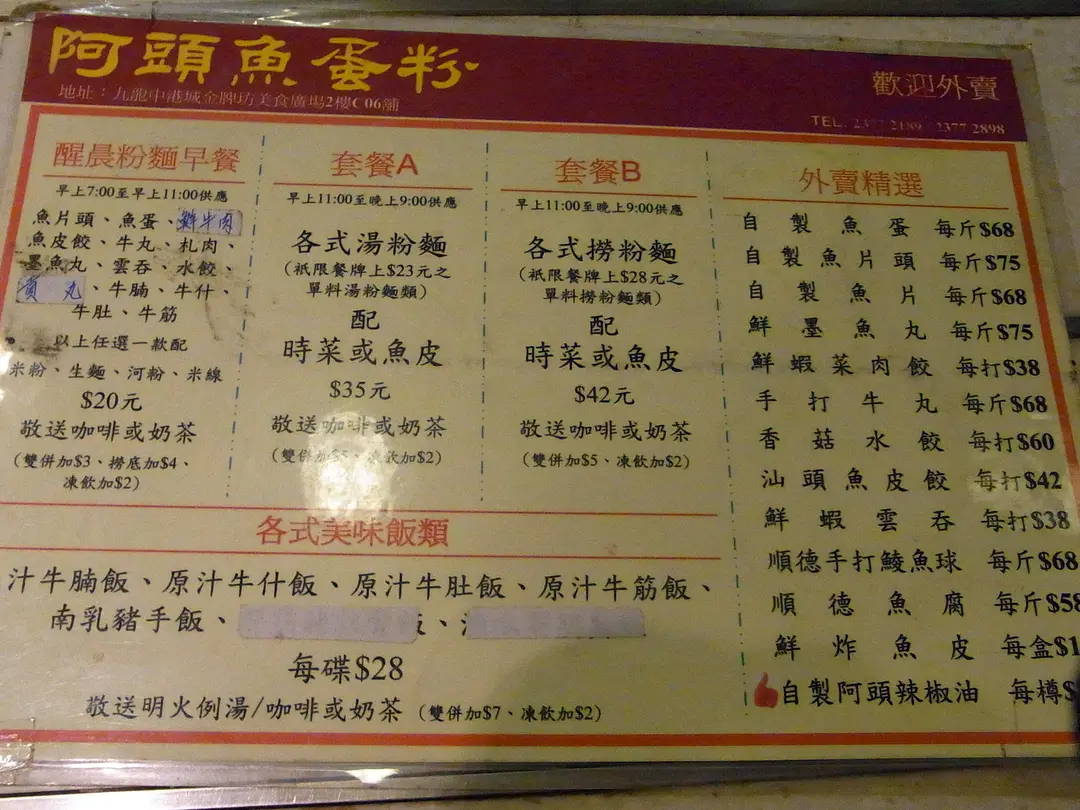 阿頭魚蛋粉
地址：九龍中港城金牌坊美食廣場2樓C06舖
歡迎外賣
TEL. 2377 2189 / 2377 2898
醒晨粉麵早餐
早上7:00至早上11:00供應
魚片頭、魚蛋、鮮牛肉
魚皮餃、牛丸、札肉、
墨魚丸、雲吞、水餃、
貢丸、牛腩、牛什、
牛肚、牛筋
以上任選一款配
米粉、生麵、河粉、米線
$20元
敬送咖啡或奶茶
(雙併加$3、撈底加$4、
凍飲加$2)
套餐A
早上11:00至晚上9:00供應
各式湯粉麵
(衹限餐牌上$23元之
單料湯粉麵類)
配
時菜或魚皮
$35元
敬送咖啡或奶茶
(雙併加$5、凍飲加$2)
套餐B
早上11:00至晚上9:00供應
各式撈粉麵
(衹限餐牌上$28元之
單料撈粉麵類)
配
時菜或魚皮
$42元
敬送咖啡或奶茶
(雙併加$5、凍飲加$2)
外賣精選
自製魚蛋 每斤$68
自製魚片頭 每斤$75
自製魚片 每斤$68
鮮墨魚丸 每斤$75
鮮蝦菜肉餃 每打$38
手打牛丸 每斤$68
香菇水餃 每打$60
汕頭魚皮餃 每打$42
鮮蝦雲吞 每打$38
順德手打鯪魚球 每斤$68
順德魚腐 每斤$58
鮮炸魚皮 每盒$1
自製阿頭辣椒油 每樽$
各式美味飯類
汁牛腩飯、原汁牛什飯、原汁牛肚飯、原汁牛筋飯、
南乳豬手飯、
每碟$28
敬送明火例湯/咖啡或奶茶 (雙併加$7、凍飲加$2)